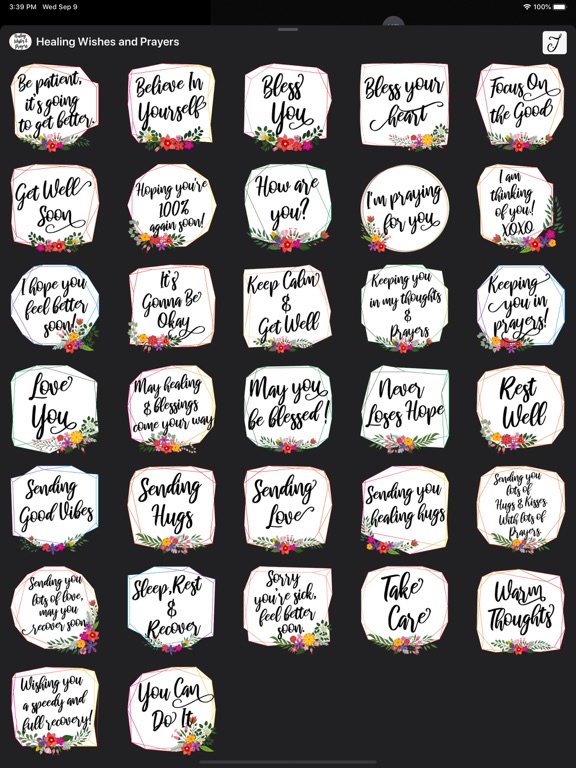 3:39 PM Wed Sep 9
100%
Healing Wishes and Prayers
Be patient,
it's going
to get better.
Believe In
Yourself
Bless
You
Bless your
heart
Focus On
the Good
Get Well
Soon
Hoping you're
100%
again soon!
How are
you?
I'm praying
for you
I am
thinking
of you!
XOXO
I hope you
feel better
soon!
It's
Gonna Be
Okay
Keep Calm
&
Get Well
Keeping you
in my thoughts
&
Prayers
Keeping
you in
prayers!
Love
You
May healing
& blessings
come your way
May you
be blessed!
Never
Loses Hope
Rest
Well
Sending
Good Vibes
Sending
Hugs
Sending
Love
Sending you
healing hugs
Sending you
lots of
Hugs & Kisses.
With lots of
Prayers
Sending you
lots of love,
may you
recover soon
Sleep, Rest
&
Recover
Sorry
you're sick,
feel better
soon.
Take
Care
Warm
Thoughts
Wishing you
a speedy and
full recovery!
You Can
Do It